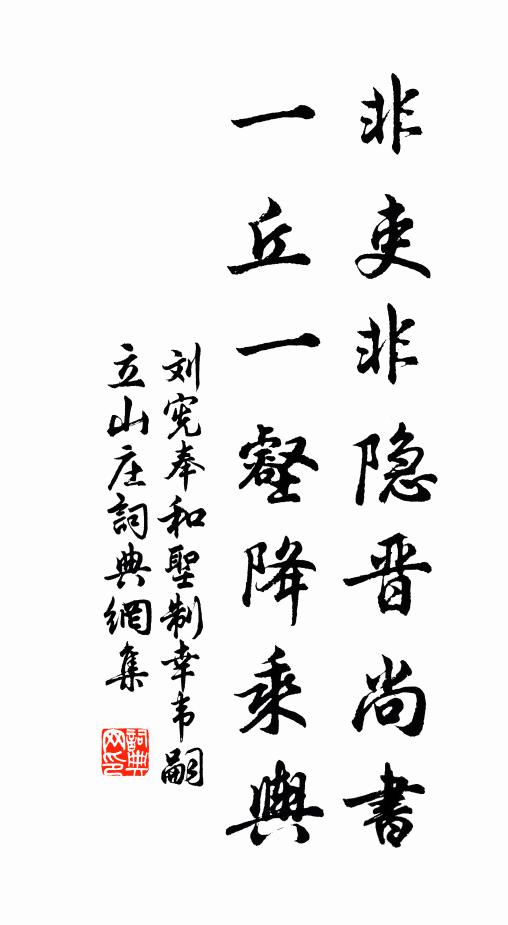 非吏非隐晋尚書
一丘一壑降乘輿
刘宪奉和聖制幸韦嗣
立山庄詞典網集
詞典
网印